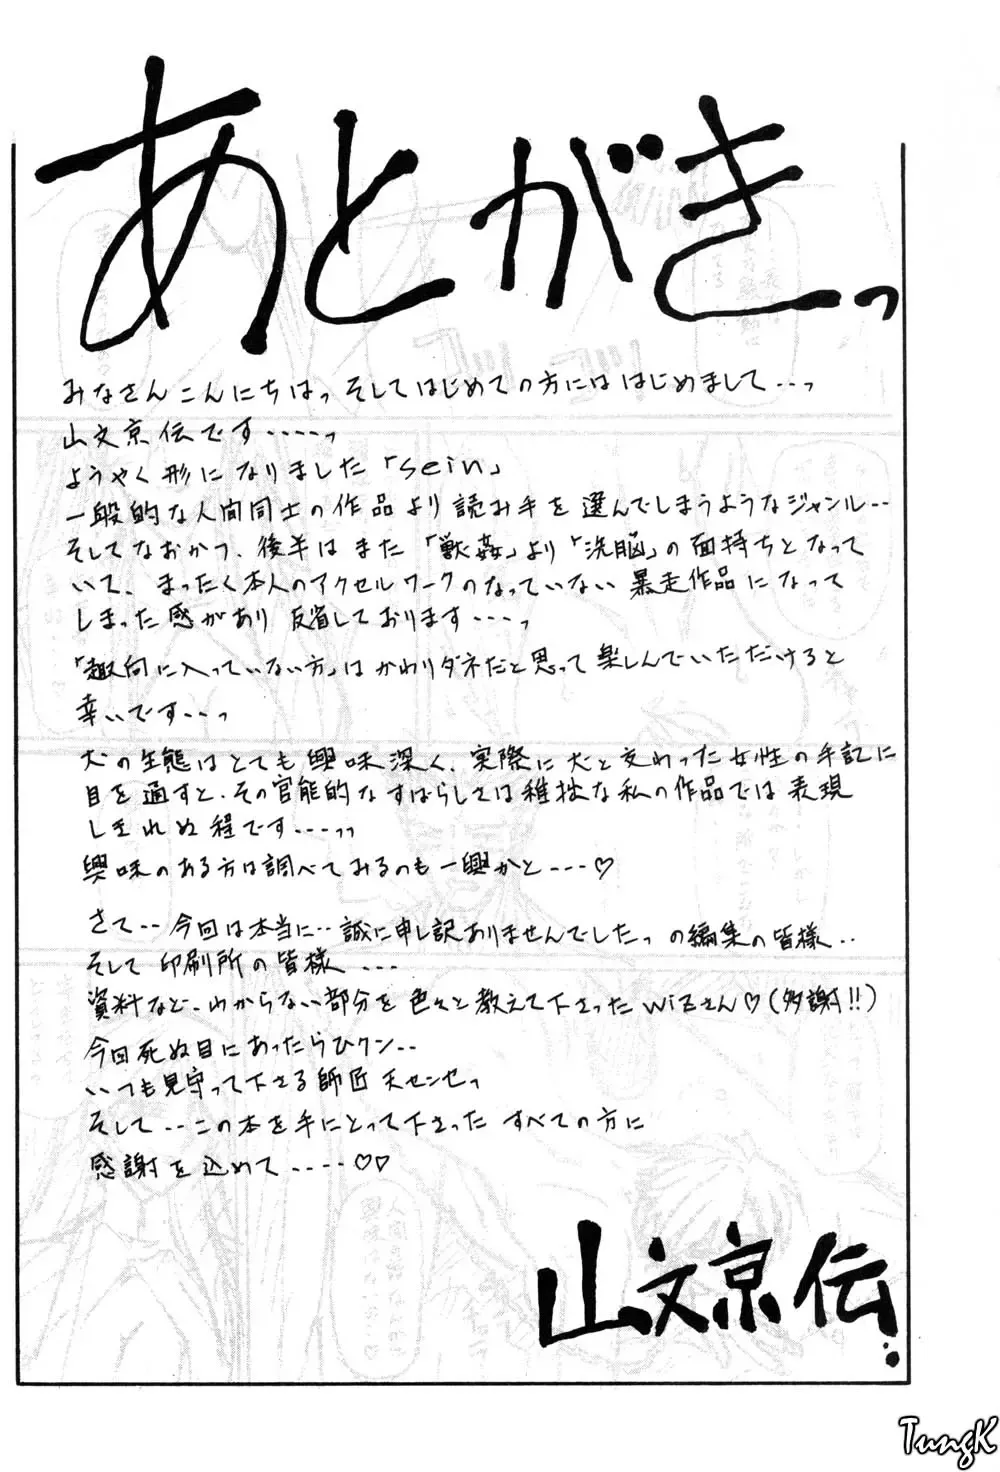 あとがきっ
みなさんこんにちはっ そしてはじめての方にははじめまして‥‥っ
山文京伝です‥‥‥‥っ
ようやく形になりました「sein」
一般的な人間同士の作品より読み手を選んでしまうようなジャンル‥‥
そしてなおかつ、後半はまた「獣姦」より「洗脳」の面持ちとなって
いて、まったく本人のアクセルワークのなっていない暴走作品になって
しまった感があり 反省しております‥‥‥っ
「趣向に入っていない方」はかわりダネだと思って楽しんでいただけると
幸いです‥‥っ
犬の生態はとても興味深く、実際に犬と交わった女性の手記に
目を通すと、その官能的なすばらしさは稚拙な私の作品では表現
しきれぬ程です‥‥‥っっ
興味のある方は調べてみるのも一興かと‥‥‥♡
さて‥‥今回は本当に‥‥誠に申し訳ありませんでしたっ の編集の皆様‥‥
そして 印刷所の皆様‥‥‥
資料など、わからない部分を色々と教えて下さったwizさん♡(多謝!!)
今回死ぬ目にあったらひクン‥‥
いつも見守って下さる師匠 天センセっ
そして‥‥この本を手にとって下さった すべての方に
感謝を込めて‥‥‥‥♡♡
山文京伝
TungK